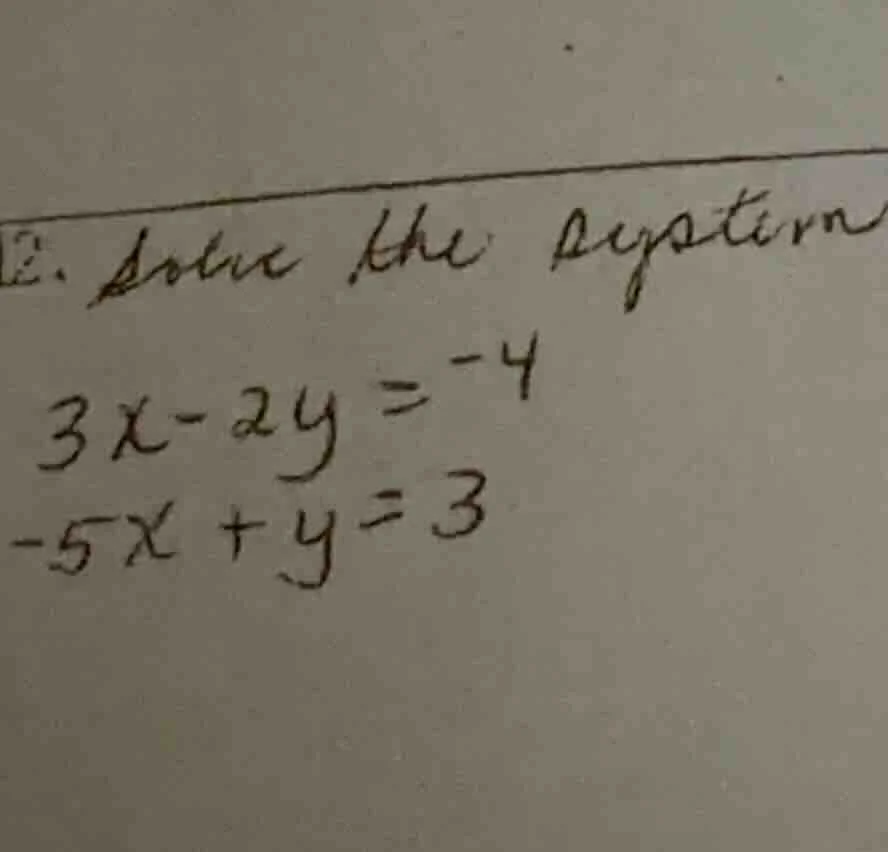 2. Solve the system
3x - 2y = -4
-5x + y = 3